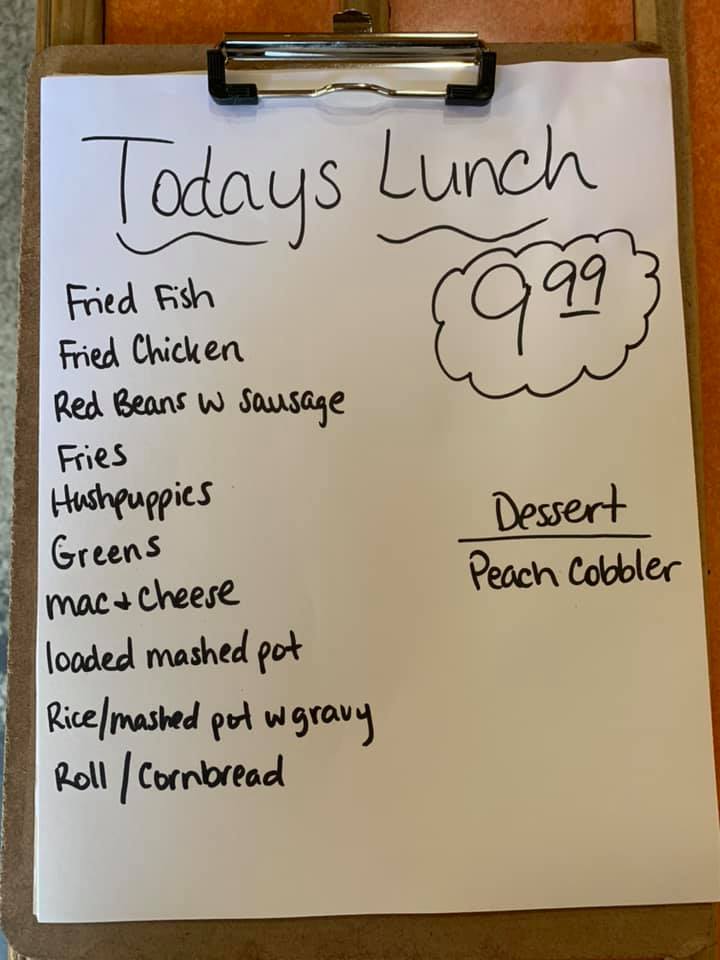 Todays Lunch
9 99
Fried Fish
Fried Chicken
Red Beans w sausage
Fries
Hushpuppies
Greens
mac + cheese
loaded mashed pot
Rice/mashed pot w gravy
Roll / Cornbread
Dessert
Peach Cobbler